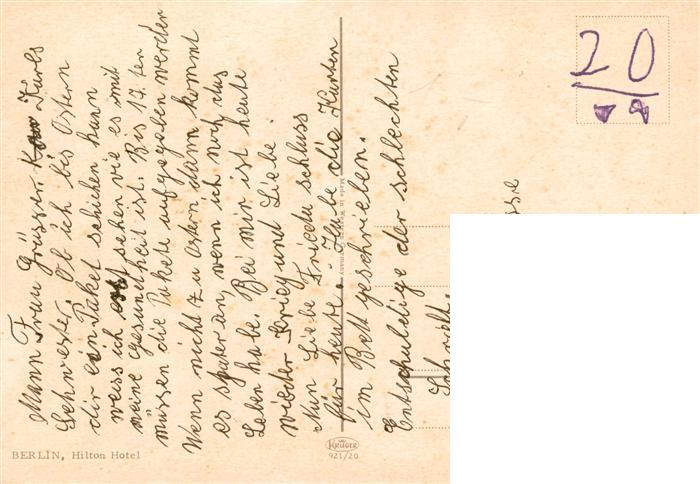 Mann Frau Grüsser Karls
Schwester. Ob ich bis Ostern
dir ein Paket schicken kann
weiss ich erst sehen wie es mit
meine Gesundheit ist. Bis 17. ten
müssen die Pakete aufgegeben werden
Wenn nicht zu Ostern dann kommt
es später an, wenn ich noch das
Leben habe. Bei mir ist heute
wieder Krieg und Liebe.
Nun Liebe Frieda schluss
für heute. Habe die Karten
im Bett geschrieben.
Entschuldige der schlechten
Schrift.
sse
20
Made in Western Germany
BERLIN, Hilton Hotel
KRÜGER
921/20